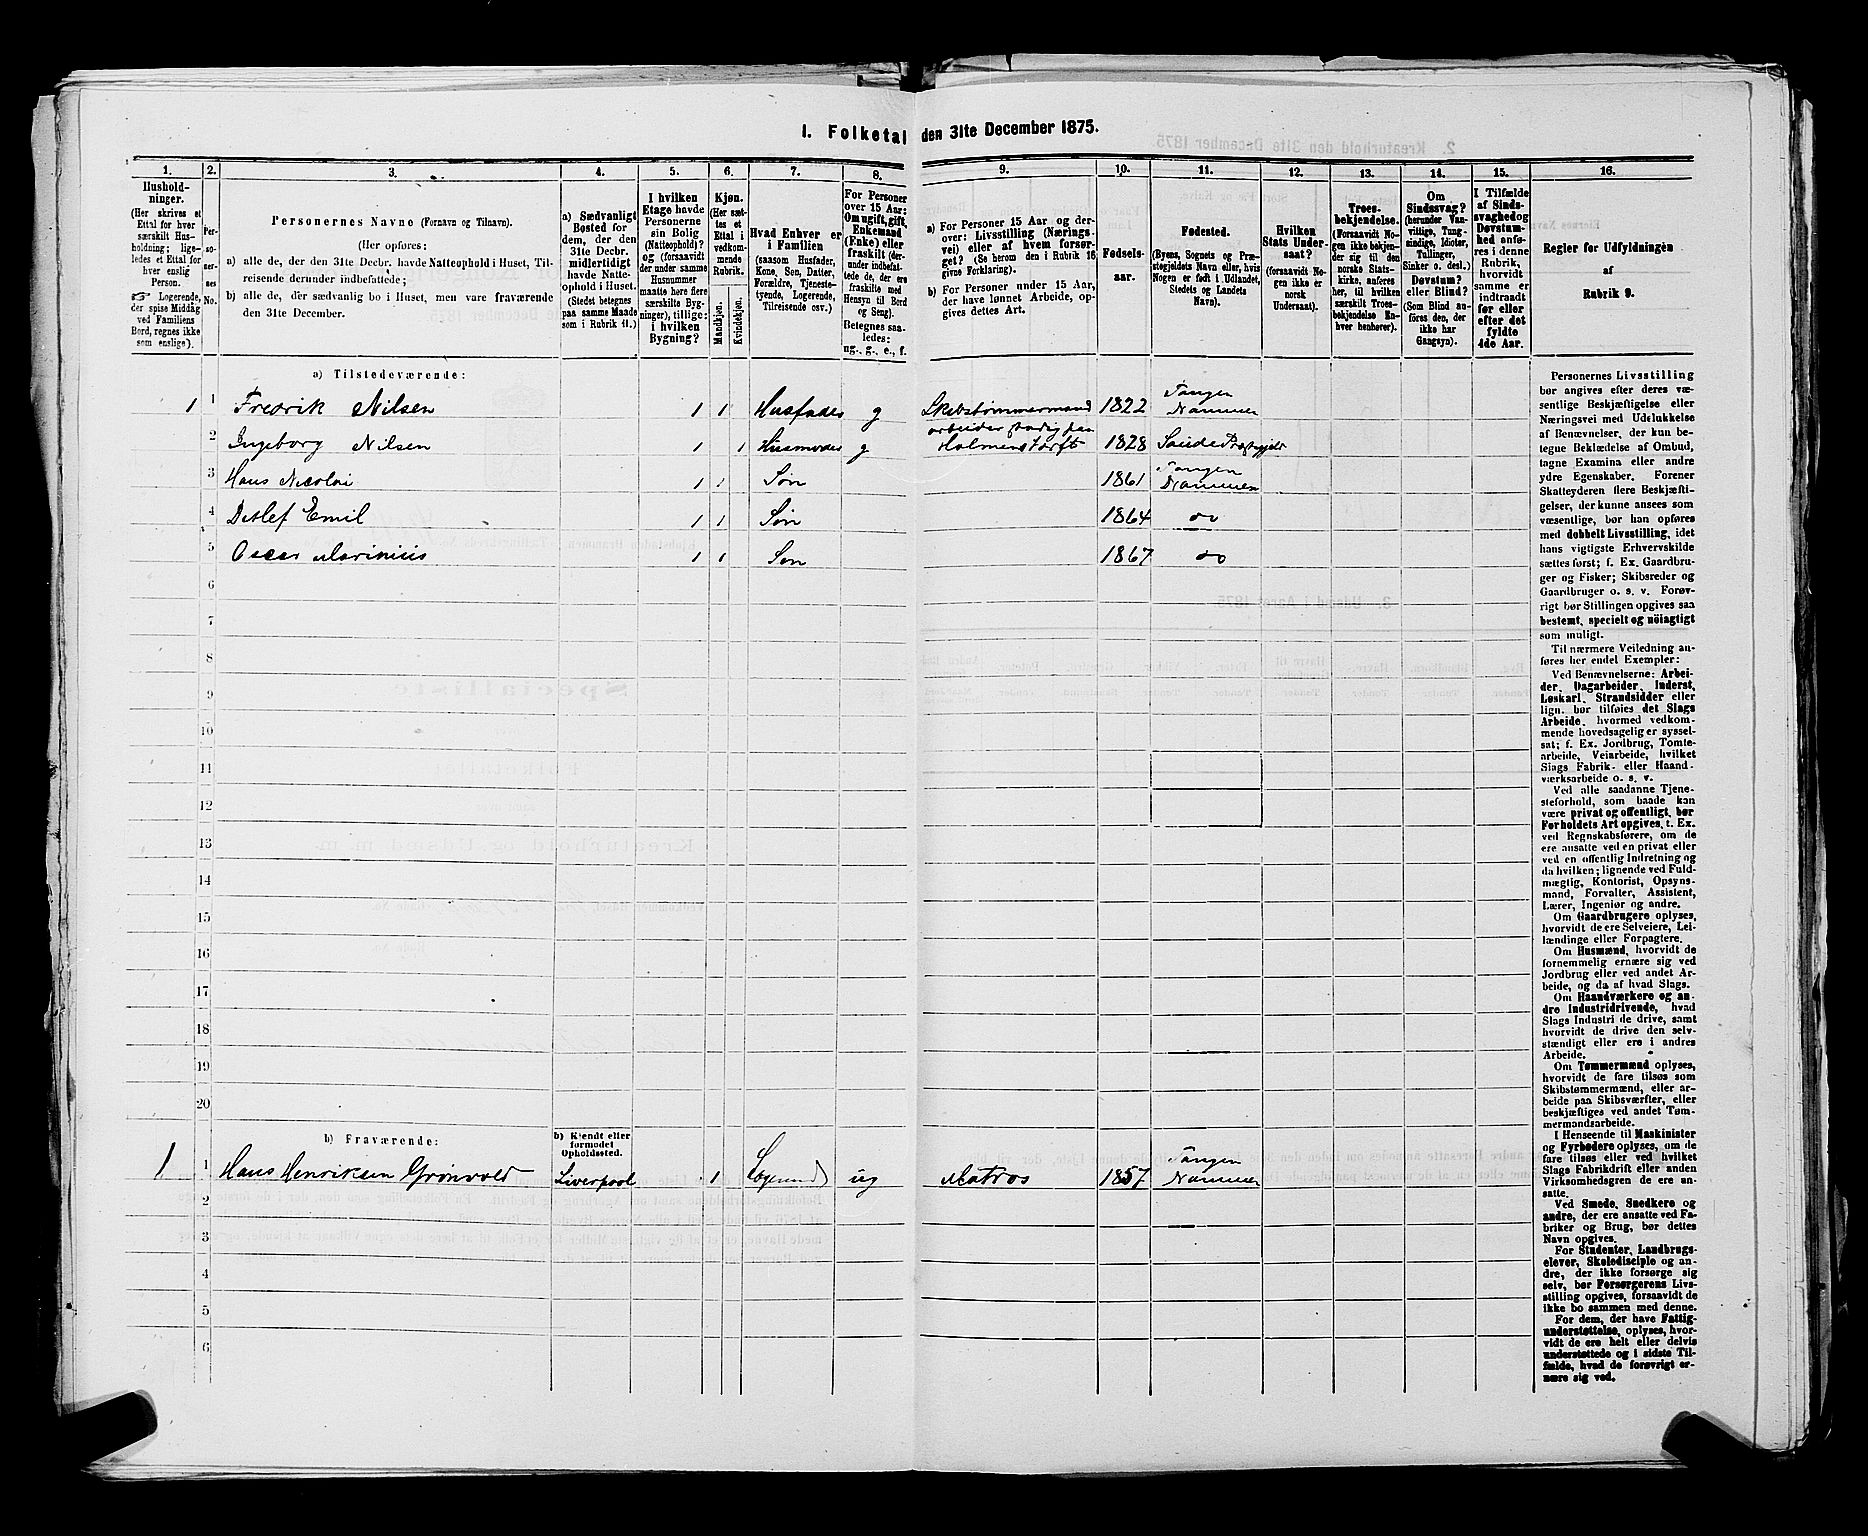 I. Folketal den 31te December 1875.
1. 2. 3. 4. 5. 6. 7. 8. 9. 10. 11. 12. 13. 14. 15. 16.
Hushold-
ninger.
(Her skrives et
Ettal for hver
særskilt Hus-
holdning; lige-
ledes et Ettal for
hver enslig
Person.
☞ Logerende,
der spise Middag
ved Familiens
Bord, regnes ikke
som enslige).
Per-
so-
ner-
nes
No.
Personernes Navne (Fornavn og Tilnavn).
(Her opføres:
a) alle de, der den 31te Decbr. havde Natteophold i Huset, Til-
reisende derunder indbefattede;
b) alle de, der sædvanlig bo i Huset, men vare fraværende
den 31te December.
a) Sædvanligt
Bosted for
dem, der den
31te Decbr.
midlertidigt
havde Natte-
ophold i Huset.
(Stedet betegnes
paa samme Maade
som i Rubrik 11.)
I hvilken
Etage havde
Personerne
sin Bolig
(Natteophold)?
og (forsaavidt
der under samme
Husnummer
maatte høre flere
særskilte Byg-
ninger), tillige:
i hvilken
Bygning?
Kjøn.
(Her sæt-
tes et
Ettal i
vedkom-
mende
Rubrik.
Mandkjøn.
Kvindekjøn.
Hvad Enhver er
i Familien
(saasom Husfader,
Kone, Søn, Datter,
Forældre, Tjeneste-
tyende, Logerende,
Tilreisende osv.)
For Personer
over 15 Aar:
Om ugift, gift,
Enkemand
(Enke) eller
fraskilt (der-
under indbefat-
tede de, der ere
fraskilte med
Hensyn til Bord
og Seng).
Betegnes saa-
ledes:
ug., g., e., f.
a) For Personer 15 Aar og der-
over: Livsstilling (Nærings-
vei) eller af hvem forsør-
get? (Se herom den i Rubrik 16
givne Forklaring).
b) For Personer under 15 Aar,
der have lønnet Arbeide, op-
gives dettes Art.
Fødsels-
aar.
Fødested.
(Byens, Sognets og Præ-
stegjeldets Navn eller, hvis
Nogen er født i Udlandet,
Stedets og Landets
Navn).
Hvilken
Stats Under-
saat?
(forsaavidt No-
gen ikke er
norsk
Undersaat).
Troes-
bekjendelse.
(Forsaavidt No-
gen ikke bekjen-
der sig til den
norske Stats-
kirke, anføres
her, til hvilken
særskilt Troes-
bekjendelse En-
hver henhører).
Om
Sindssvag?
(herunder Van-
vittige, Tung-
sindige, Idioter,
Tullinger,
Sinker o. desl.)
Døvstum?
eller Blind?
(Som Blind an-
føres den, der
ikke har
Gangsyn).
I Tilfælde
af Sinds-
svaghed og
Døvstum-
hed anfø-
res i denne
Rubrik,
hvorvidt
samme er
indtraadt
før eller
efter det
fyldte
4de Aar.
Regler for Udfyldningen
af
Rubrik 9.
a) Tilstedeværende:
1 1 Fredrik Nilsen 1 1 Husfader g Skibstømmermand 1822 Tangen
arbeider stadig paa Drammen
2 Ingeborg Nilsen 1 1 Husmoder g Holmens Værft 1828 Sande Præstegjeld
3 Hans Nicolai 1 1 Søn 1861 Tangen
Drammen
4 Detlef Emil 1 1 Søn 1864 do
5 Oscar Marinius 1 1 Søn 1867 do
6
7
8
9
10
11
12
13
14
15
16
17
18
19
20
b) Fraværende:
b) Kjendt eller
formodet
Opholdssted.
1 1 Hans Henriksen Grønvold Liverpool 1 Logerende ug Matros 1857 Tangen
Drammen
2
3
4
5
6
Personernes Livsstilling
bør angives efter deres væ-
sentlige Beskjæftigelse eller
Næringsvei med Udelukkelse
af Benævnelser, der kun be-
tegne Beklædelse af Ombud,
tagne Examina eller andre
ydre Egenskaber. Forener
Skatteyderen flere Beskjæfti-
gelser, der kunne ansees som
væsentlige, bør han opføres
med dobbelt Livsstilling, idet
hans vigtigste Erhvervskilde
sættes først; f. Ex. Gaardbru-
ger og Fisker; Skibsreder og
Gaardbruger o. s. v. Forøv-
rigt bør Stillingen opgives saa
bestemt, specielt og nöiagtigt
som muligt.
Til nærmere Veiledning an-
føres her endel Exempler:
Ved Benævnelserne: Arbei-
der, Dagarbeider, Inderst,
Løskarl, Strandsidder eller
lign. bør tilføies det Slags
Arbeide, hvormed vedkom-
mende hovedsagelig er syssel-
sat; f. Ex. Jordbrug, Tomte-
arbeide, Veiarbeide, hvilket
Slags Fabrik- eller Haand-
værksarbeide o. s. v.
Ved alle saadanne Tjene-
steforhold, som baade kan
være privat og offentligt, bør
Forholdets Art opgives, t. Ex.
ved Regnskabsførere, om de
ere ansatte ved en privat eller
ved en offentlig Indretning og
da hvilken; lignende ved Fuld-
mægtig, Kontorist, Opsyns-
mand, Forvalter, Assistent,
Lærer, Ingeniør og andre.
Om Gaardbrugere oplyses,
hvorvidt de ere Selveiere, Lei-
lændinge eller Forpagtere.
Om Husmænd, hvorvidt de
fornemmelig ernære sig ved
Jordbrug eller ved andet Ar-
beide, og da af hvad Slags.
Om Haandværkere og an-
dre Industridrivende, hvad
Slags Industri de drive, samt
hvorvidt de drive den selv-
stændigt eller ere i andres
Arbeide.
Om Tømmermænd oplyses,
hvorvidt de fare tilsøs som
Skibstømmermænd, eller ar-
beide paa Skibsværfter, eller
beskjæftiges ved andet Tøm-
mermandsarbeide.
I Henseende til Maskinister
og Fyrbødere oplyses, om de
fare tilsøs eller ved hvilket
Slags Fabrikdrift eller anden
Virksomhedsgren de ere an-
satte.
Ved Smede, Snedkere og
andre, der ere ansatte ved Fa-
briker og Brug, bør dettes
Navn opgives.
For Studenter, Landbrugs-
elever, Skoledisciple og an-
dre, der ikke forsørge sig
selv, bør Forsørgerens Livs-
stilling opgives, forsaavidt de
ikke bo sammen med denne.
For dem, der have Fattig-
understøttelse, oplyses, hvor-
vidt de ere helt eller delvis
understøttede og i sidste Til-
fælde, hvad de forøvrigt er-
nære sig ved.